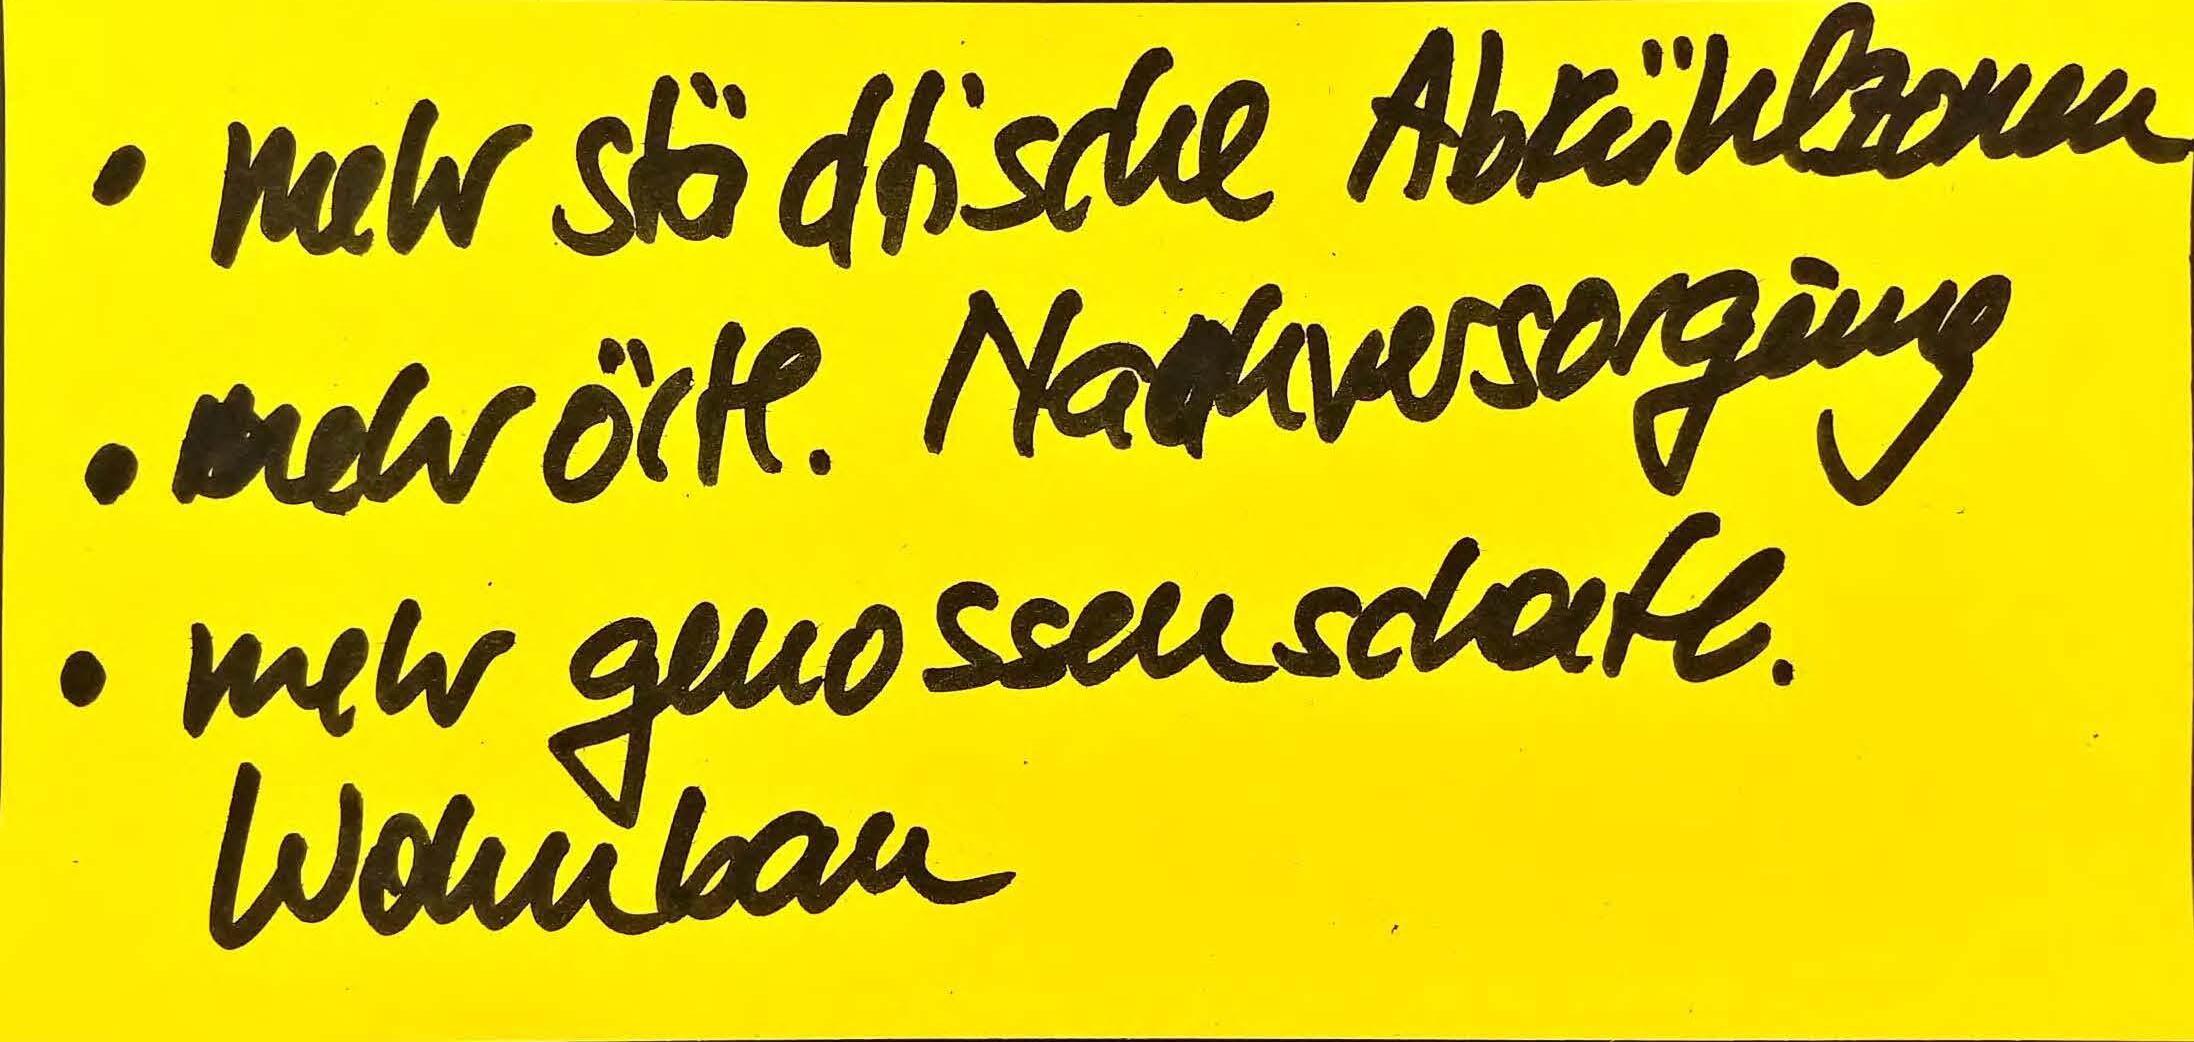 • mehr städtische Abkühlzonen
• mehr örtl. Nachversorgung
• mehr genossenschaftl.
Wohnbau